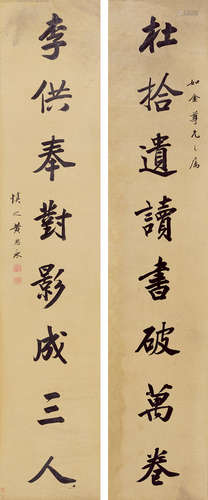 如金尊兄之属
杜拾遺讀書破萬卷
李供奉對影成三人
慎之黄思永